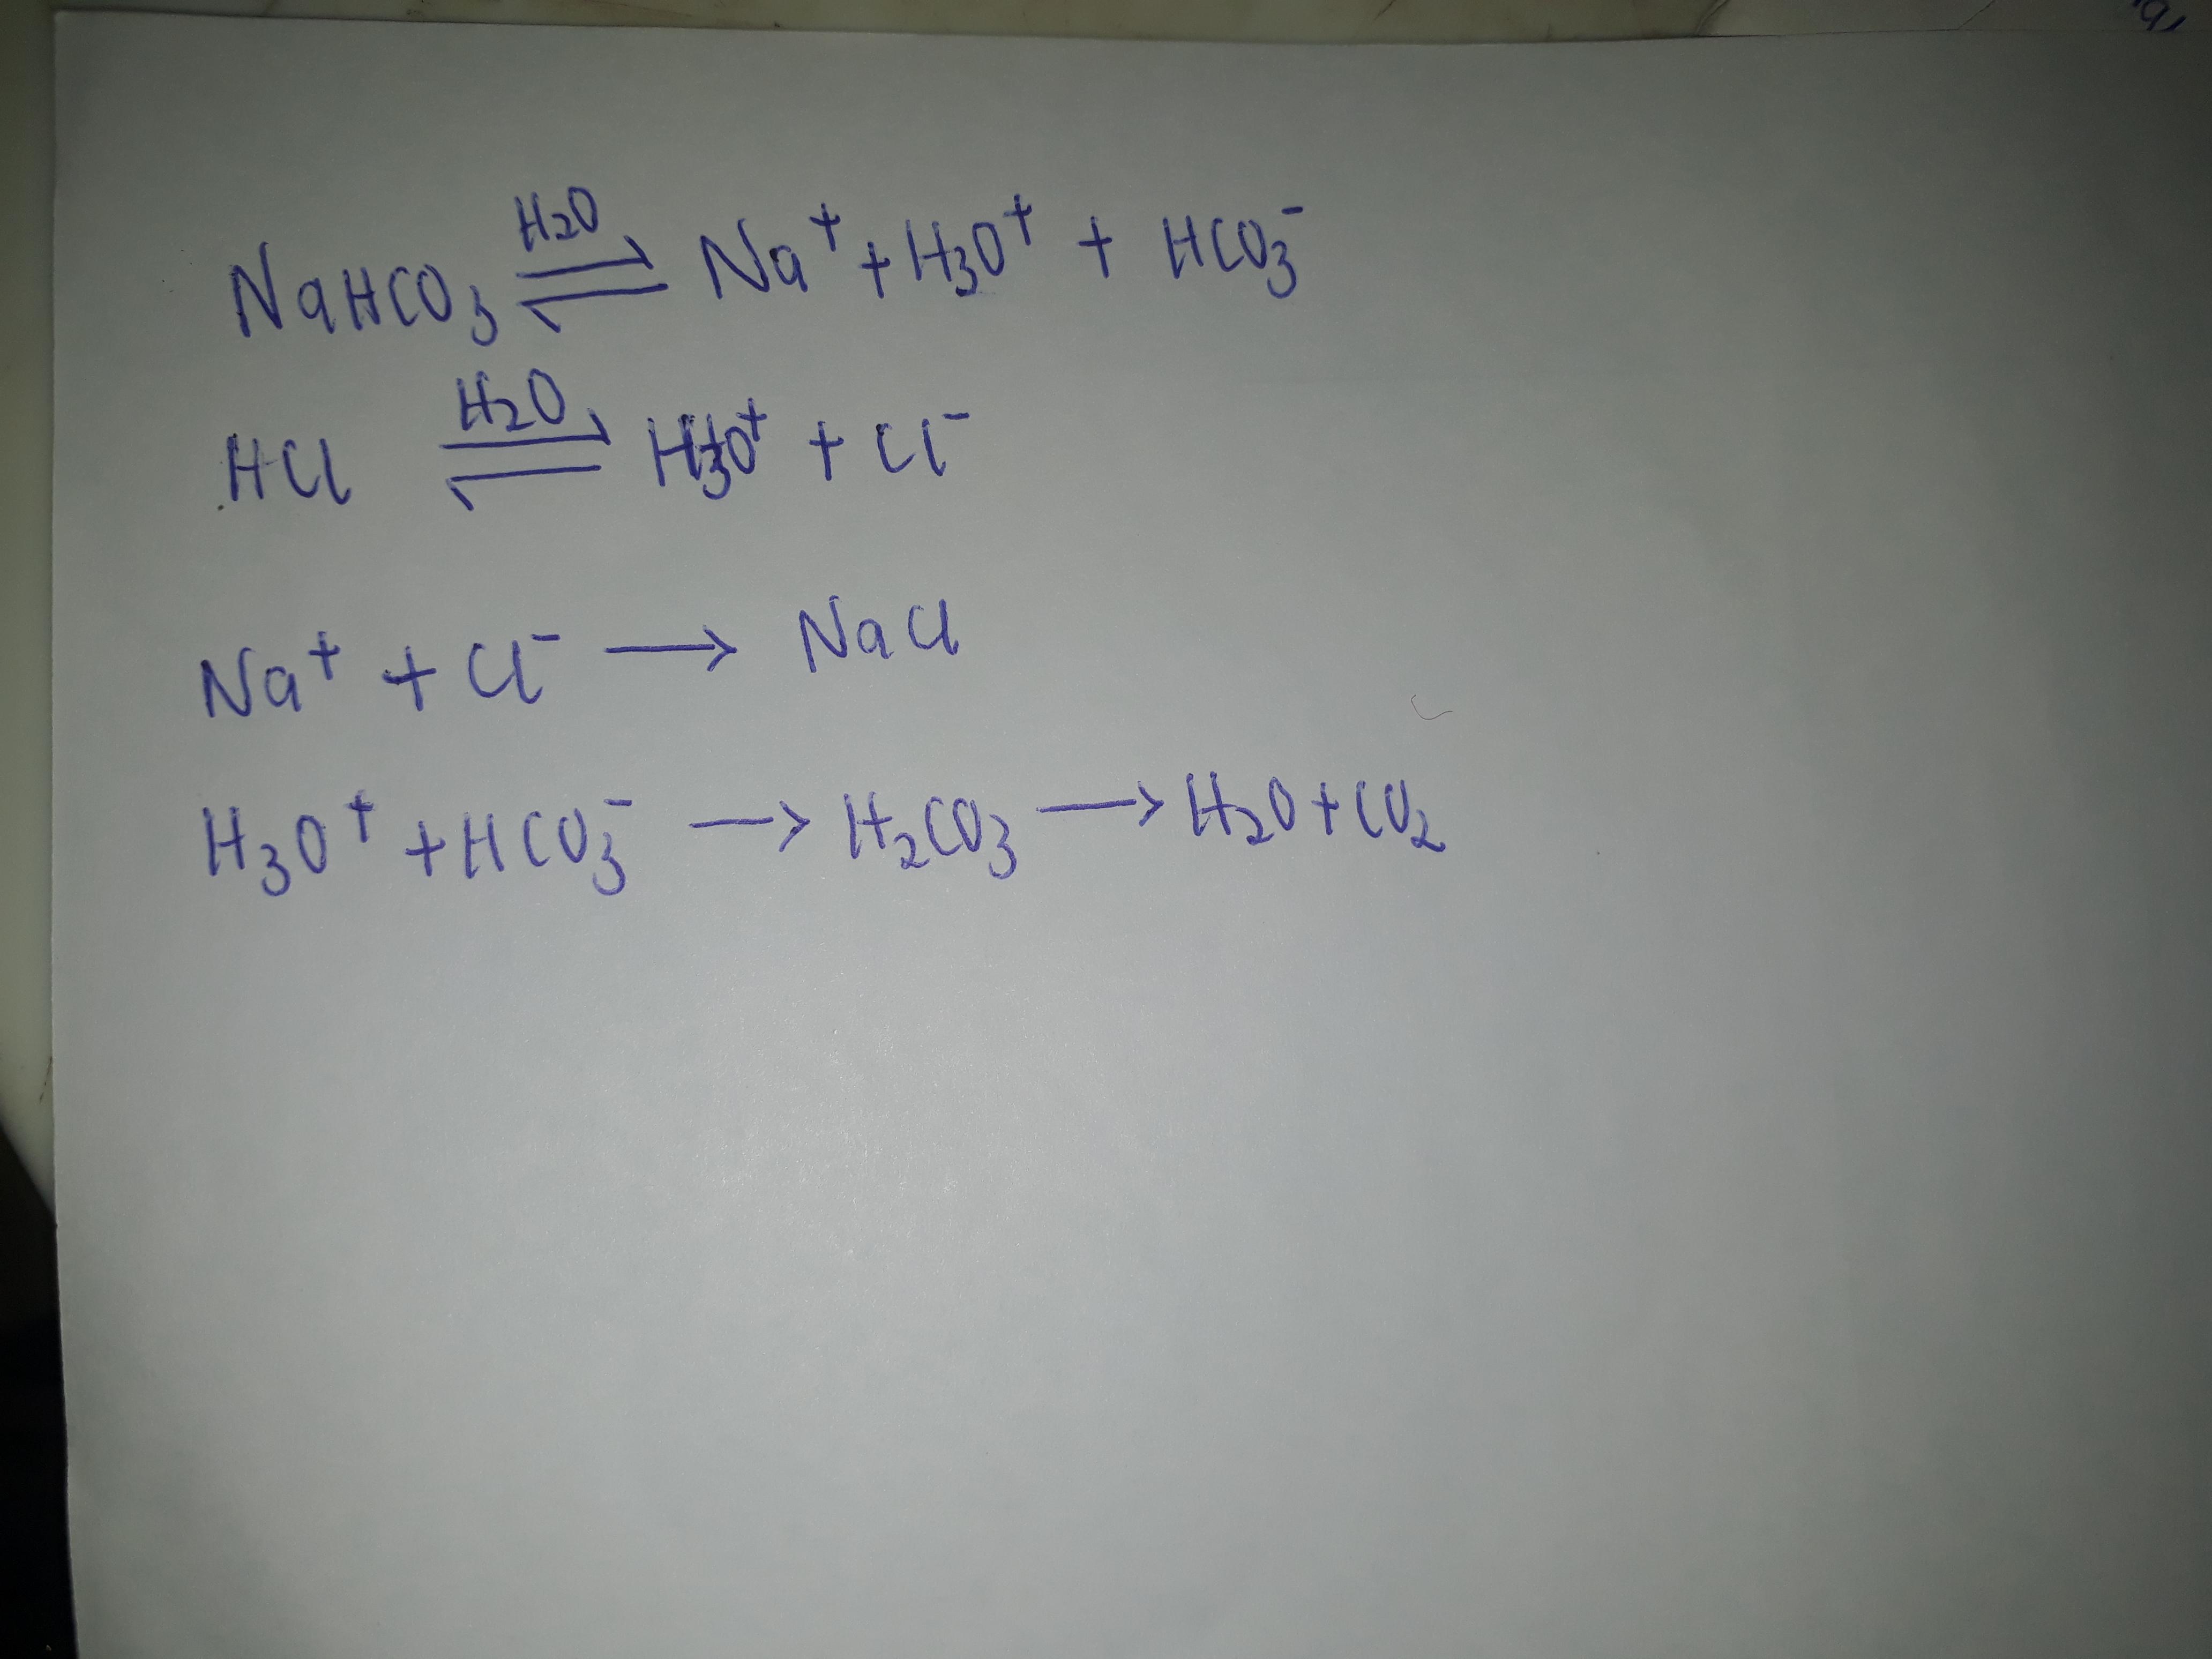 H2O
NaHCO3 ⇌ Na+ + H3O+ + HCO3-
H2O
HCl ⇌ H3O+ + Cl-
Na+ + Cl- → NaCl
H3O+ + HCO3- → H2CO3 → H2O + CO2